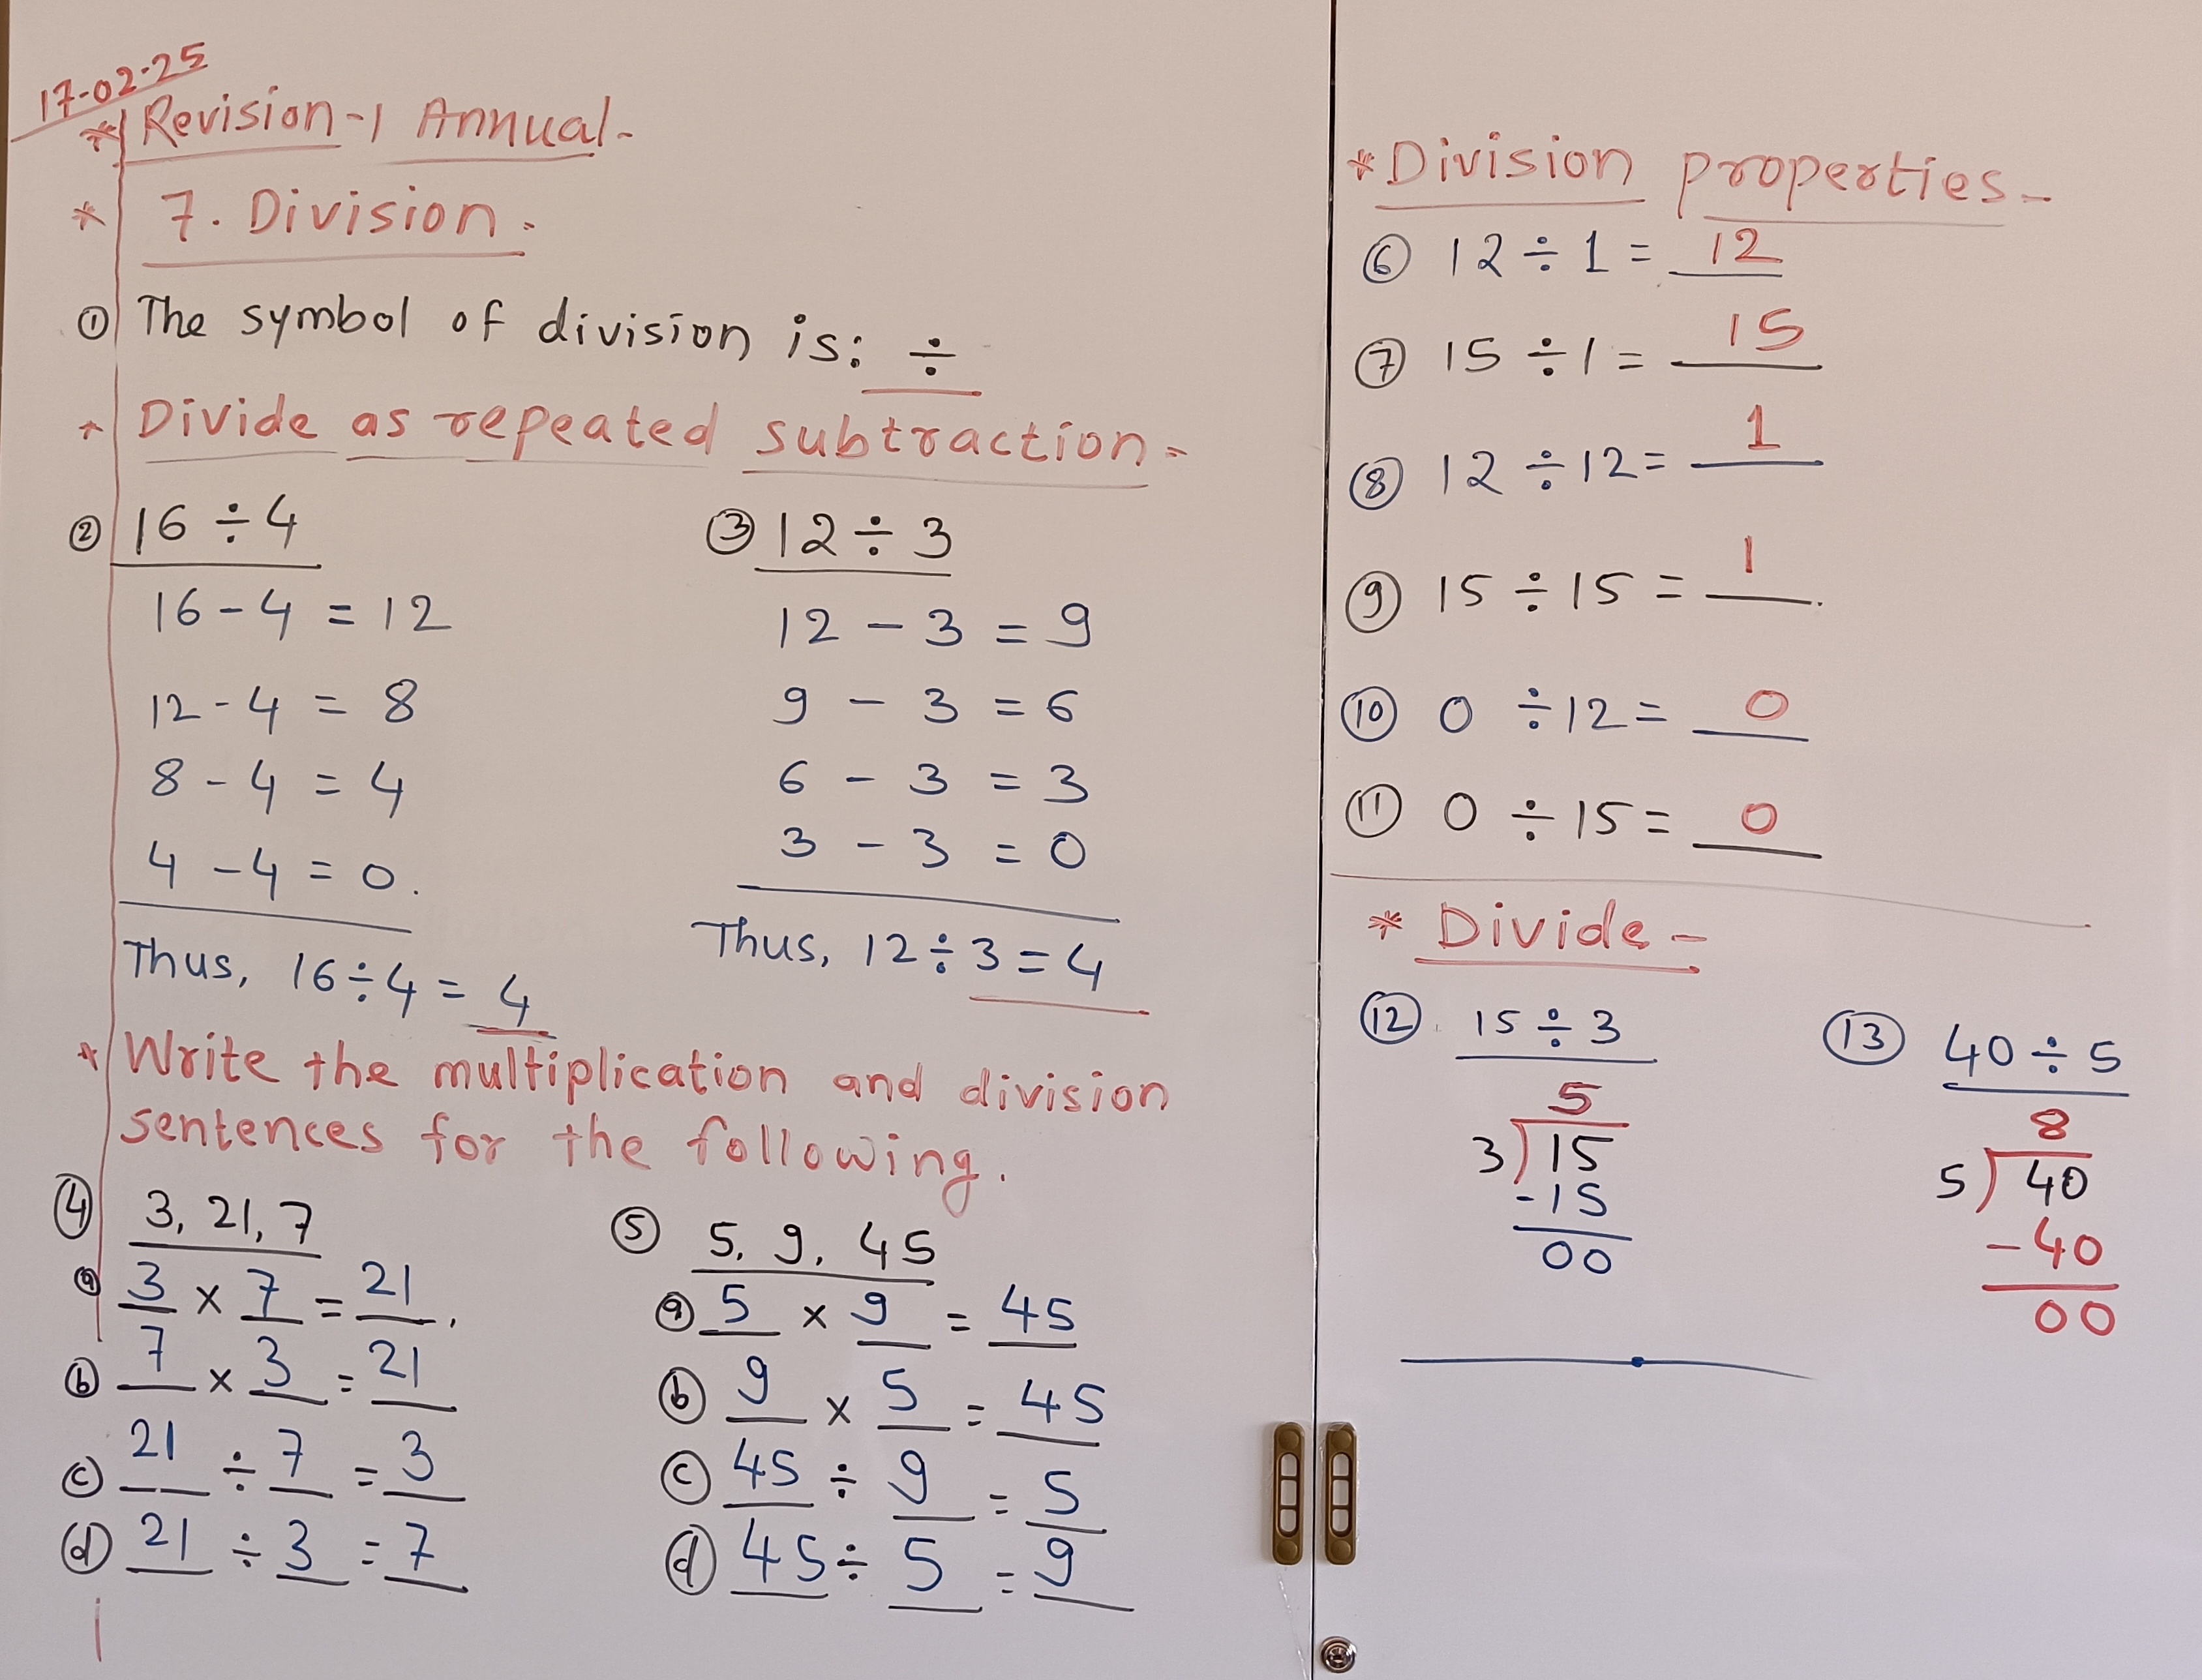 17-02-25
* Revision-1 Annual-
* 7. Division.
① The symbol of division is: ÷
* Divide as repeated subtraction-
② 16 ÷ 4
16 - 4 = 12
12 - 4 = 8
8 - 4 = 4
4 - 4 = 0.
Thus, 16 ÷ 4 = 4
③ 12 ÷ 3
12 - 3 = 9
9 - 3 = 6
6 - 3 = 3
3 - 3 = 0
Thus, 12 ÷ 3 = 4
* Write the multiplication and division
sentences for the following.
④ 3, 21, 7
ⓐ 3 × 7 = 21.
ⓑ 7 × 3 = 21
ⓒ 21 ÷ 7 = 3
ⓓ 21 ÷ 3 = 7
⑤ 5, 9, 45
ⓐ 5 × 9 = 45
ⓑ 9 × 5 = 45
ⓒ 45 ÷ 9 = 5
ⓓ 45 ÷ 5 = 9
* Division properties-
⑥ 12 ÷ 1 = 12
⑦ 15 ÷ 1 = 15
⑧ 12 ÷ 12 = 1
⑨ 15 ÷ 15 = 1.
⑩ 0 ÷ 12 = 0
⑪ 0 ÷ 15 = 0
* Divide-
⑫ 15 ÷ 3
5
3)15
-15
00
⑬ 40 ÷ 5
8
5)40
-40
00